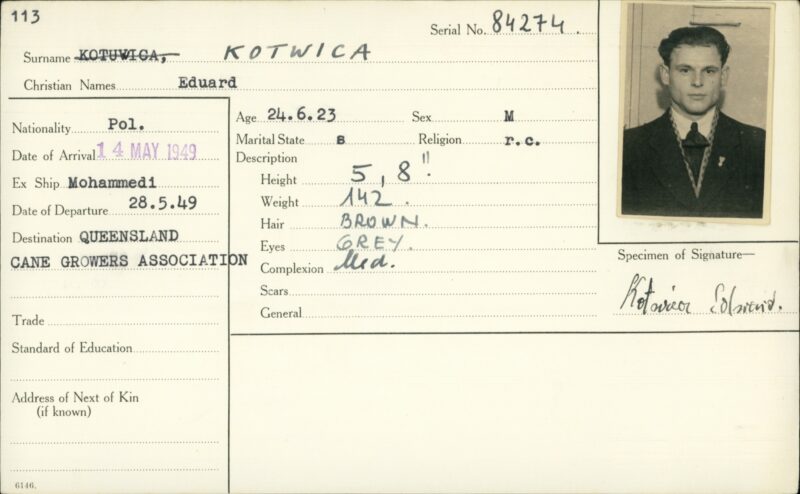 113
Serial No. 84274.
Surname KOTUWICA, KOTWICA
Christian Names Eduard
Nationality Pol.
Date of Arrival 14 MAY 1949
Ex Ship Mohammedi
Date of Departure 28.5.49
Destination QUEENSLAND
CANE GROWERS ASSOCIATION
Trade
Standard of Education
Address of Next of Kin
(if known)
6146.
Age 24.6.23 Sex M
Marital State B Religion r.c.
Description
Height 5,8"
Weight 142.
Hair BROWN.
Eyes GREY.
Complexion Med.
Scars
General
Specimen of Signature—